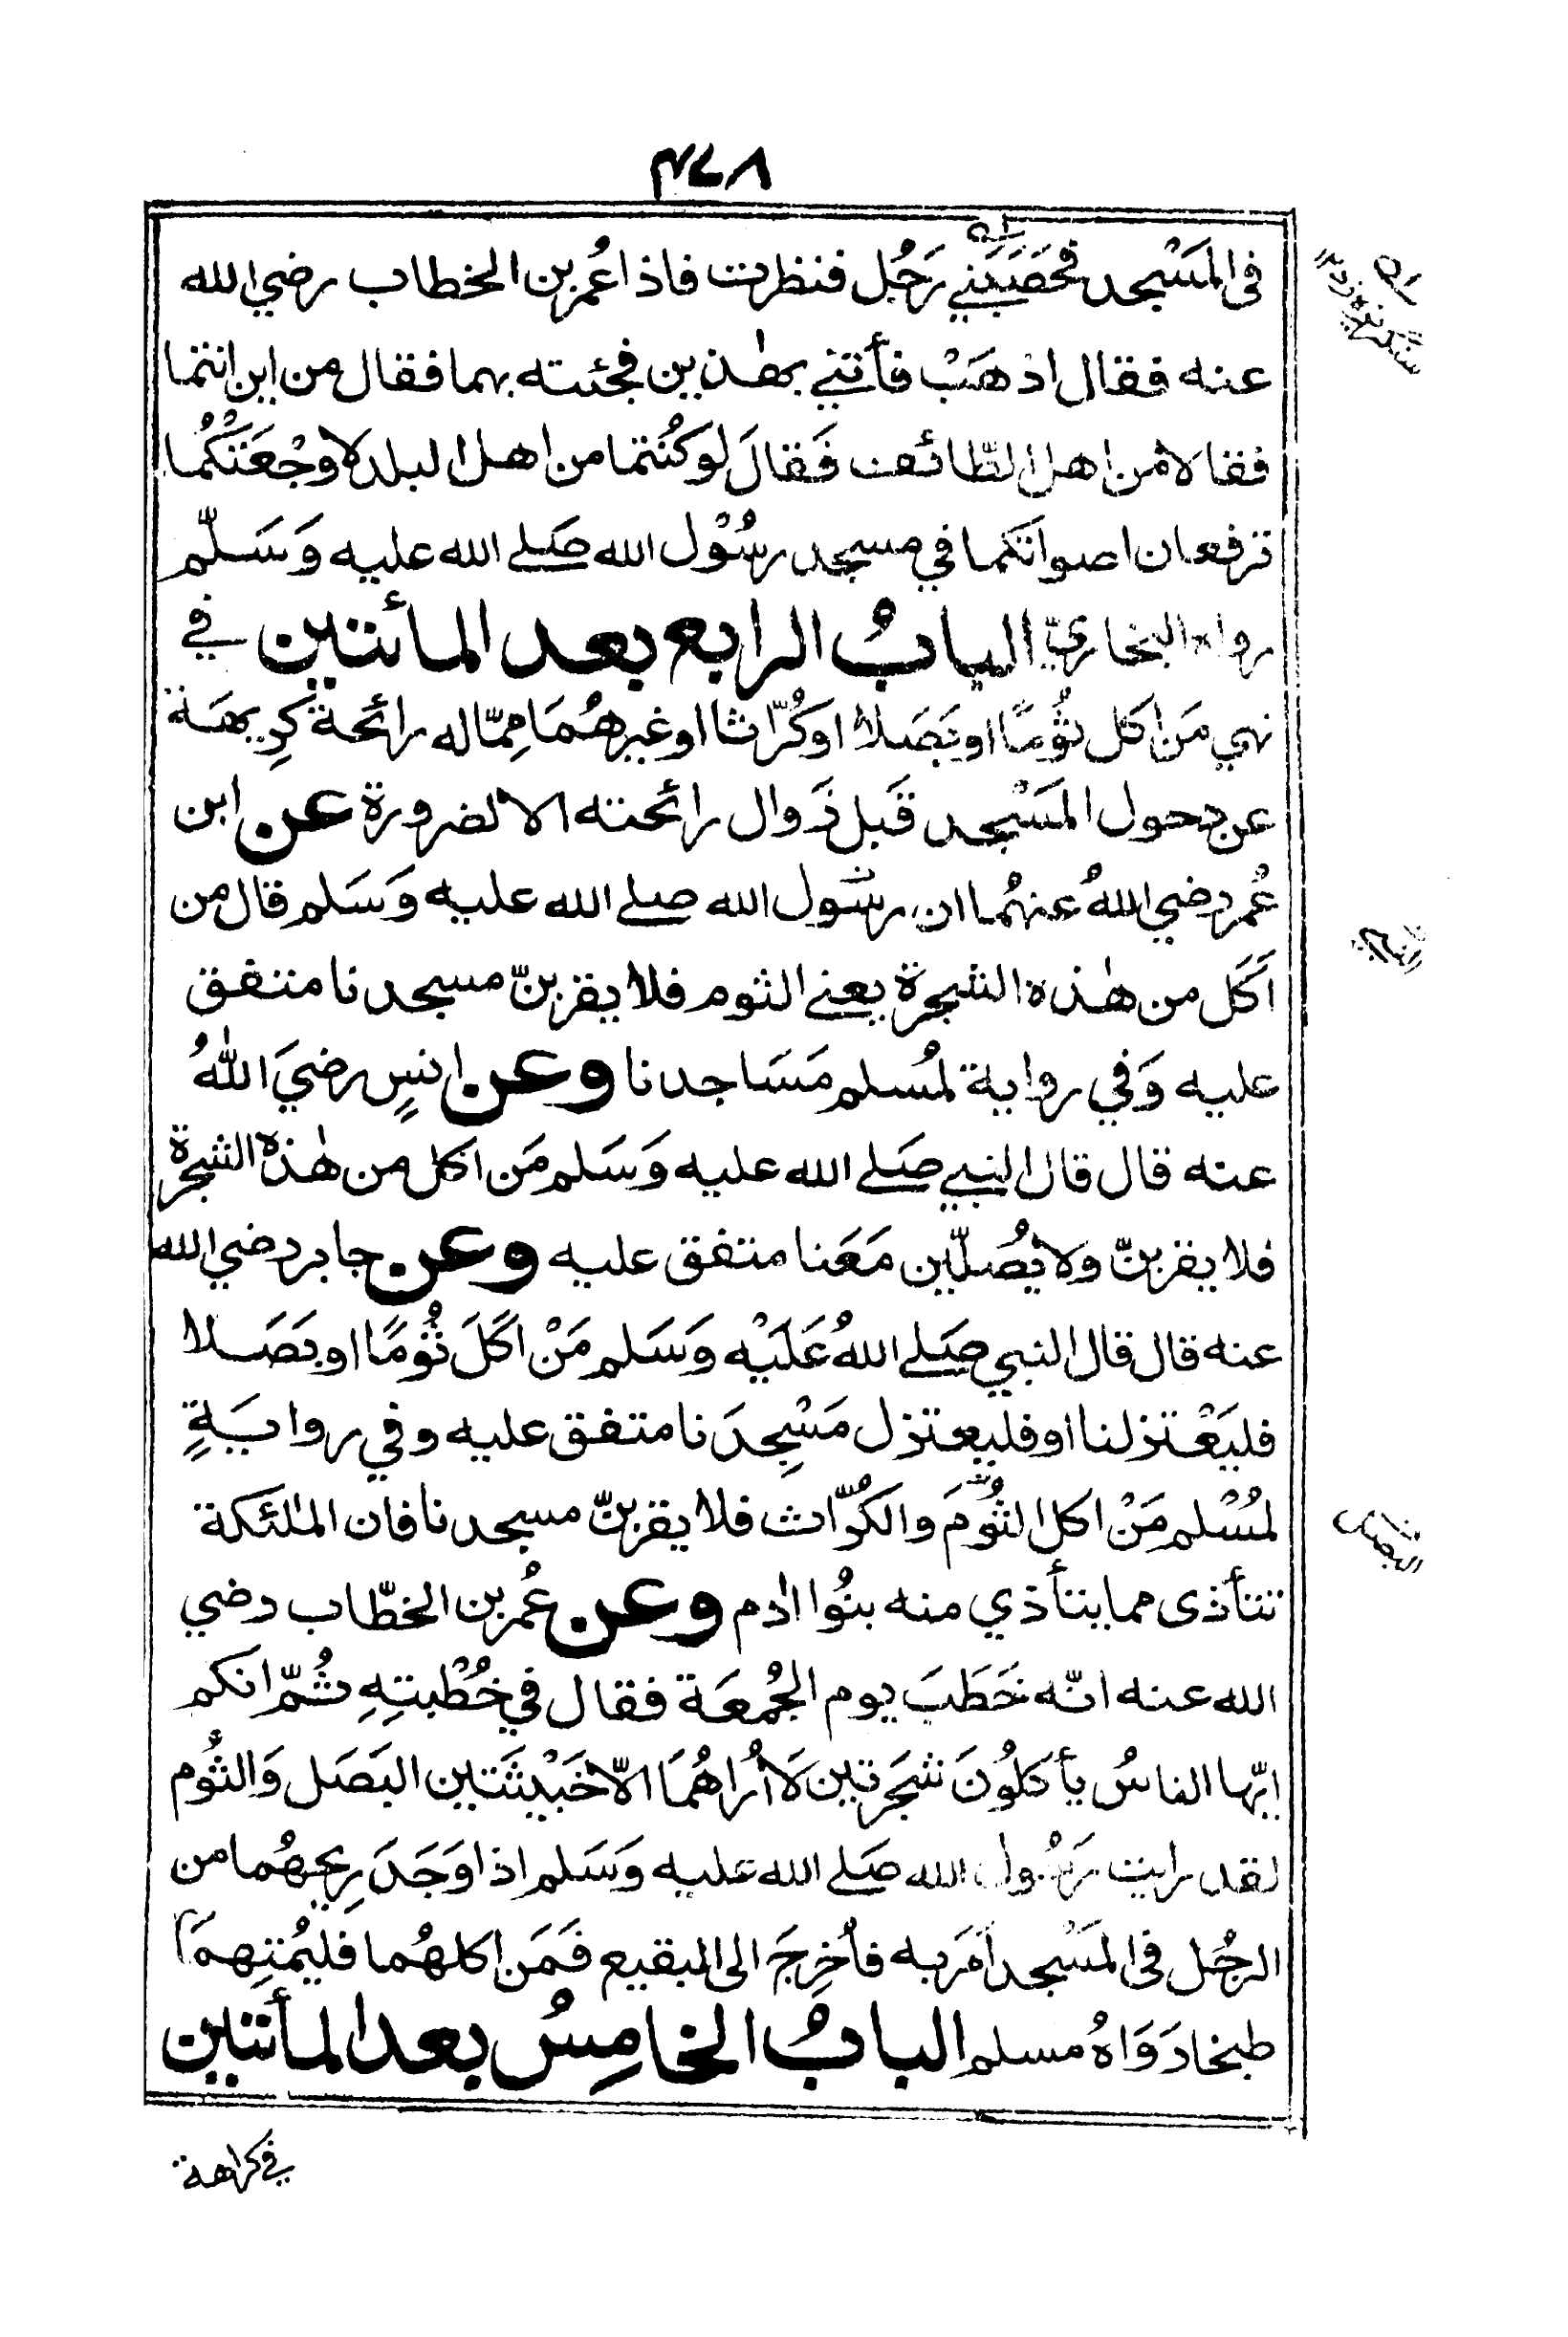 ۴۷۸
في المَسْجد فحَصَبَني رَجُل فنظرت فاذا عُمر بن الخطاب رضي الله
عنه فقال اذهَبْ فأتني بهٰذين فجئته بهما فقال من اين انتما
فقالا من اهل الطّائف فَقالَ لو كُنتما من اهل البلد لاوجْعَتُكُما
ترفعان اصواتَكما في مسجد رسُوْل الله صَلى الله عليه وَسَلّم
رواه البخاريّ البابُ الرابع بعد المأئتين في
نهي مَن اكل ثُومًا او بَصَلا او كُرّاثا او غيرهُمَا مِمّا له رائحة كرِيهَة
عن دحول المَسْجد قَبل زَوال رائحته الا لضرورة عن ابن
عُمر رضي اللهُ عنهُما ان رسُول الله صلى الله عليه وَسَلم قال من
اَكَل من هٰذه الشجرة يعني الثوم فلا يقربنّ مسجدنا متفق
عليه وَفي رواية لمُسلم مَسَاجدنا وعن انسٍ رضيَ اللهُ
عنه قال قال النبي صَلى الله عليه وَسَلم مَن اكل من هٰذه الشجرة
فلا يقربنّ ولا يُصَلّين مَعَنا متفق عليه وعن جابر رضي الله
عنه قال قال النبي صَلى اللهُ عَلَيْه وَسَلم مَنْ اَكَلَ ثُومًا او بَصَلا
فليَعْتزلنا او فليعتزل مَسْجِدَنا متفق عليه وفي روايَةٍ
لمُسْلم مَنْ اكل الثُومَ والكُرّاث فلا يقربنّ مسجدنا فان الملٰئكة
تتأذى مما يتأذي منه بنُوا اٰدم وعن عُمر بن الخطّاب رضي
الله عنه انّه خَطَبَ يوم الجُمعَة فقال في خُطْبتِهِ ثُمّ انكم
ايّها الناسُ يأكلُونَ شجَرتين لَا اُراهُمَا الّا خَبيْثَتين البَصَل وَالثُوم
لقد رايت رَسُول الله صَلى الله عليه وَسَلم اذا وَجَدَ رِيحهُما من
الرجُل في المَسْجد اَمَر به فاُخرِجَ الى البقيع فَمَن اكلهُما فليُمتهمَا
طبخا رَوَاهُ مسلم البابُ الخامِسُ بعد المأئتين
في كراهة
البصل